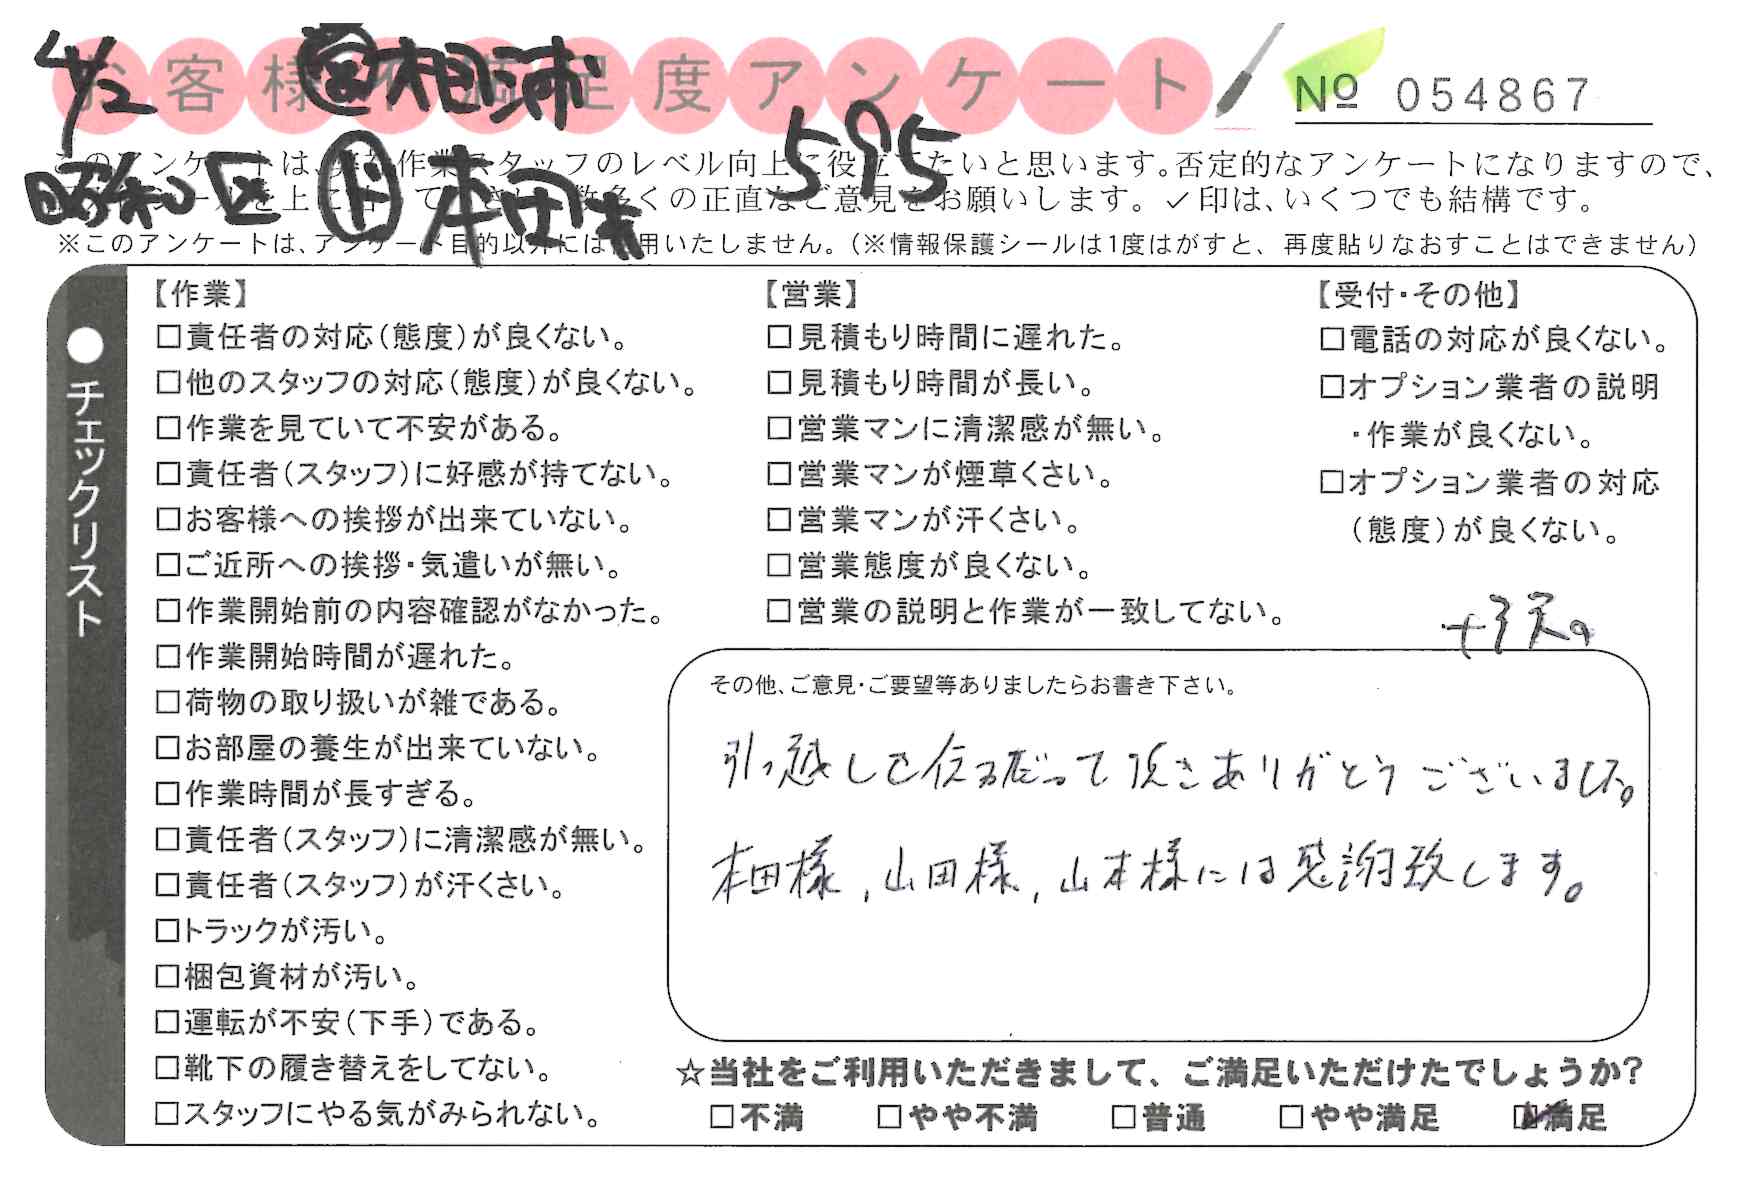 4/2 相浦 595
お客様不満足度アンケート
№ 054867
昭和区 ト 本田
このアンケートは、作業スタッフのレベル向上に役立てたいと思います。否定的なアンケートになりますので、
数多くの正直なご意見をお願いします。✓印は、いくつでも結構です。
※このアンケートは、アンケート目的以外には使用いたしません。(※情報保護シールは1度はがすと、再度貼りなおすことはできません)
●チェックリスト
【作業】
□責任者の対応(態度)が良くない。
□他のスタッフの対応(態度)が良くない。
□作業を見ていて不安がある。
□責任者(スタッフ)に好感が持てない。
□お客様への挨拶が出来ていない。
□ご近所への挨拶・気遣いが無い。
□作業開始前の内容確認がなかった。
□作業開始時間が遅れた。
□荷物の取り扱いが雑である。
□お部屋の養生が出来ていない。
□作業時間が長すぎる。
□責任者(スタッフ)に清潔感が無い。
□責任者(スタッフ)が汗くさい。
□トラックが汚い。
□梱包資材が汚い。
□運転が不安(下手)である。
□靴下の履き替えをしてない。
□スタッフにやる気がみられない。
【営業】
□見積もり時間に遅れた。
□見積もり時間が長い。
□営業マンに清潔感が無い。
□営業マンが煙草くさい。
□営業マンが汗くさい。
□営業態度が良くない。
□営業の説明と作業が一致してない。
【受付・その他】
□電話の対応が良くない。
□オプション業者の説明
・作業が良くない。
□オプション業者の対応
(態度)が良くない。
その他、ご意見・ご要望等ありましたらお書き下さい。
引っ越しで伝って頂きありがとうございました。
本田様,山田様,山本様には感謝致します。
☆当社をご利用いただきまして、ご満足いただけたでしょうか?
□不満 □やや不満 □普通 □やや満足 ☑満足